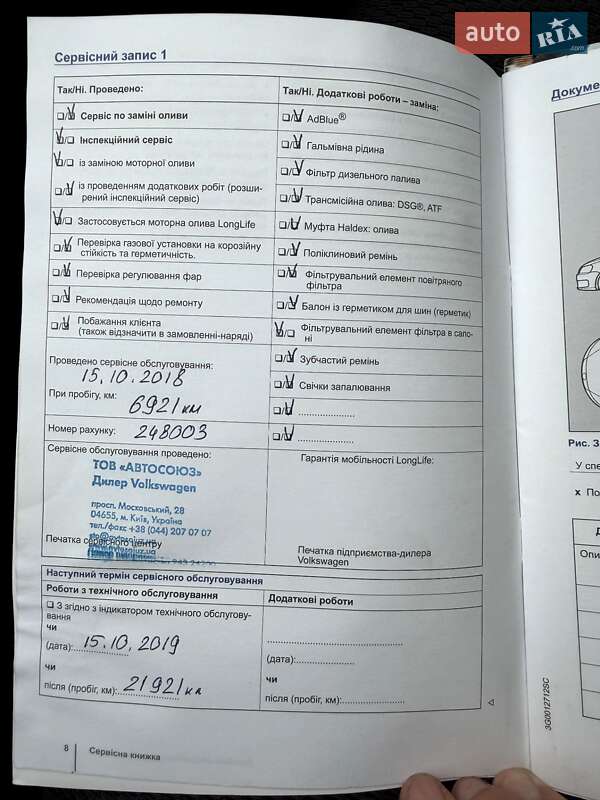 auto RIA .com
Сервісний запис 1
Докуме
Так/Ні. Проведено:
Так/Ні. Додаткові роботи – заміна:
❏/❏ Сервіс по заміні оливи
❏/❏ AdBlue®
❏/❏ Інспекційний сервіс
❏/❏ Гальмівна рідина
❏/❏ із заміною моторної оливи
❏/❏ Фільтр дизельного палива
❏/❏ із проведенням додаткових робіт (розши-
рений інспекційний сервіс)
❏/❏ Трансмісійна олива: DSG®, ATF
❏/❏ Застосовується моторна олива LongLife
❏/❏ Муфта Haldex: олива
❏/❏ Перевірка газової установки на корозійну
стійкість та герметичність.
❏/❏ Поліклиновий ремінь
❏/❏ Перевірка регулювання фар
❏/❏ Фільтрувальний елемент повітряного
фільтра
❏/❏ Рекомендація щодо ремонту
❏/❏ Балон із герметиком для шин (герметик)
❏/❏ Побажання клієнта
(також відзначити в замовленні-наряді)
❏/❏ Фільтрувальний елемент фільтра в сало-
ні
Проведено сервісне обслуговування:
15.10.2018
❏/❏ Зубчастий ремінь
При пробігу, км:
6921 км
❏/❏ Свічки запалювання
❏/❏ .....................
Номер рахунку: 248003
❏/❏ .....................
Сервісне обслуговування проведено:
ТОВ «АВТОСОЮЗ»
Дилер Volkswagen
просп. Московський, 28
04655, м. Київ, Україна
тел./факс +38 (044) 207 07 07
Печатка сервісного центру
Гарантія мобільності LongLife:
Печатка підприємства-дилера
Volkswagen
Наступний термін сервісного обслуговування
Роботи з технічного обслуговування
Додаткові роботи
❏ З згідно з індикатором технічного обслугову-
вання
чи
(дата): 15.10.2019
чи
після (пробіг, км): 21921 км
(дата):....................
чи
після (пробіг, км):......................
8
Сервісна книжка
3G0012712SC
Рис. 3
У спе
x По
Д
Опи